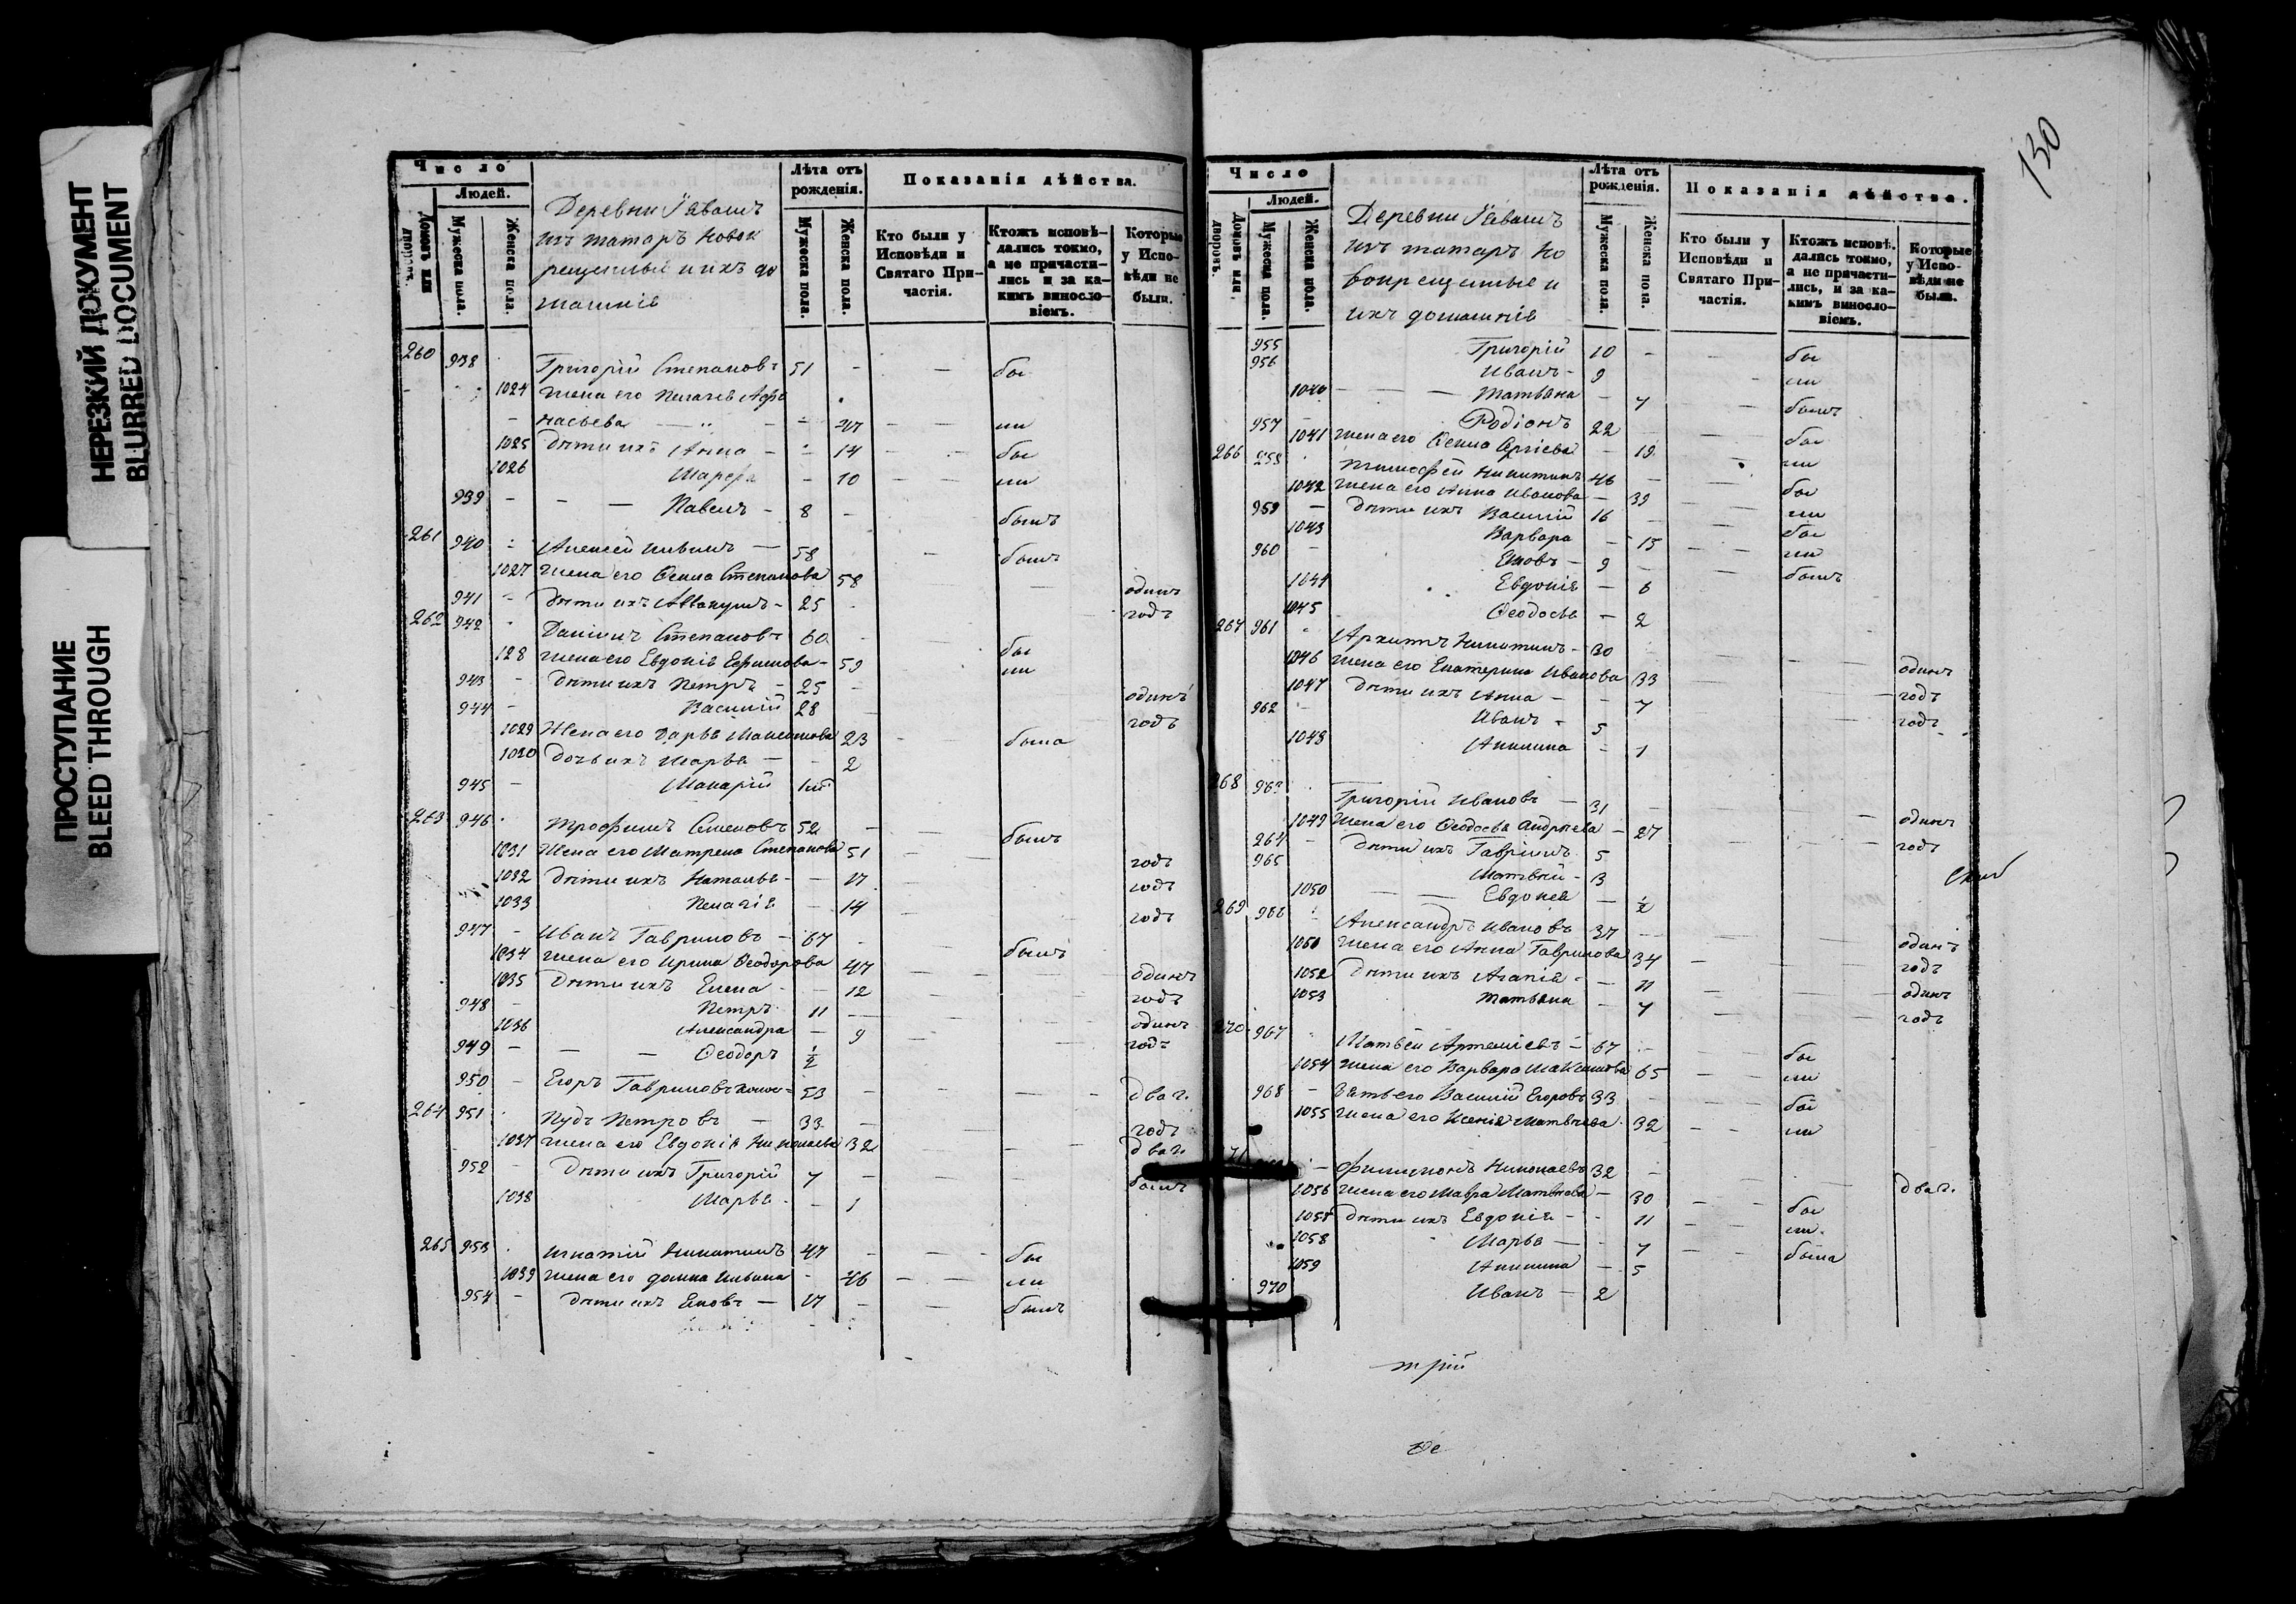 НЕРЕЗКИЙ ДОКУМЕНТ
BLURRED DOCUMENT
ПРОСТУПАНИЕ
BLEED THROUGH
Число
Людей.
Домовъ или дворовъ.
Мужеска пола.
Женска пола.
Деревни
изъ татаръ новок
рещенные и ихъ до
машнiе
Лѣта отъ рожденiя.
Мужеска пола.
Женска пола.
Показанiя дѣйства.
Кто были у Исповѣди и Святаго Причастiя.
Ктожъ исповѣдались токмо, а не причастились и за какимъ винословiемъ.
Которые у Исповѣди не были.
260 938 Григорiй Степановъ 51 - - бы
1024 жена его Пелагея Афа
насьева - - 47 - - ли
1025 дѣти ихъ Анна - - 14 - - бы
1026 Марфа - 10 - - ли
939 - - - Павелъ - 8 - былъ
261 940 - Алексей Ильинъ - 58 - былъ
1027 жена его Ѳекла Степанова 58 - одинъ
941 - дѣти ихъ Аввакумъ - 25 - годъ
262 942 Данiилъ Степановъ 60 - бы
128 жена его Евдокiя Ефимова - 59 ли
943 - дѣти ихъ Петръ - 25 - одинъ
944 - Василiй 28 - годъ
1029 Жена его Дарья Максимова 23 - была
1030 дочь ихъ Марья - - 2
945 - Макарiй
263 946 Трофимъ Семеновъ 52 - былъ
1031 Жена его Матрена Степанова 51 - годъ
1032 дѣти ихъ Наталья - - 17 годъ
1033 Пелагiя - 14 - годъ
947 - Иванъ Гавриловъ - 67 - былъ
1034 жена его Ирина Ѳеодорова 47 - одинъ
1035 дѣти ихъ Елена - - 12 - годъ
948 - Петръ 11 - одинъ
1036 Александра - 9 - годъ
949 - - - Ѳеодоръ ½
950 - Егоръ Гавриловъ - 53 - два г.
264 951 Пудъ Петровъ - 33 - годъ
1037 жена его Евдокiя Николаева 32 - два г.
952 - дѣти ихъ Григорiй 7 - былъ
1038 Марья - - 1
265 953 Игнатiй Никитинъ 47 - - - бы
1039 жена его Домна Ильина - 46 - - ли
954 - дѣти ихъ Яковъ - 17 - - былъ
130
Число
Людей.
Домовъ или дворовъ.
Мужеска пола.
Женска пола.
Деревни
изъ татаръ но
вокрещенные и
ихъ домашнiе
Лѣта отъ рожденiя.
Мужеска пола.
Женска пола.
Показанiя дѣйства.
Кто были у Исповѣди и Святаго Причастiя.
Ктожъ исповѣдались токмо, а не причастились, и за какимъ винословiемъ.
Которые у Исповѣди не были.
955 Григорiй 10 - - бы
956 Иванъ - 9 - ли
1040 - - - Татьяна - 7 - былъ
957 - Родiонъ 22 - бы
1041 жена его Ѳекла - 19 - ли
266 958 Тимофей Никитинъ 46 - бы
1042 жена его Анна Иванова - 39 - ли
959 - дѣти ихъ Василiй 16 - бы
1043 Варвара - 15 - - ли
960 - Яковъ - 9 - - былъ
1044 Евдокiя - 6
1045 Ѳеодосья - 2
267 961 Архипъ Никитинъ - 30 - одинъ
1046 жена его Екатерина Иванова 33 - годъ
1047 дѣти ихъ Анна - - 7 - годъ
962 - Иванъ - 5
1048 Акилина - 1
268 963 Григорiй Ивановъ - 31 - одинъ
1049 Жена его Ѳеодосья Андреева - 27 - годъ
264 - дѣти ихъ Гаврiилъ 5
965 Матвѣй - 3
1050 - - Евдокея - ½
269 966 Александръ Ивановъ 37 - одинъ
1050 жена его Анна Гаврилова 34 - годъ
1052 дѣти ихъ Агапiя - - 11 - одинъ
1053 Татьяна - 7 - годъ
270 967 Матвѣй Артемiевъ - 67 - бы
1054 жена его Варвара Максимова 65 - ли
968 - Зять его Василiй Егоровъ 33 - бы
1055 жена его Ксенiя Матвѣева 32 - ли
- Филимонъ Николаевъ 32 - два г.
1056 жена его Мавра Матвѣева - 30 - бы
1057 дѣти ихъ Евдокiя - - 11 - ли
1058 Марья - - 7 - была
1059 Акилина - 5
970 Иванъ - 2
трiй